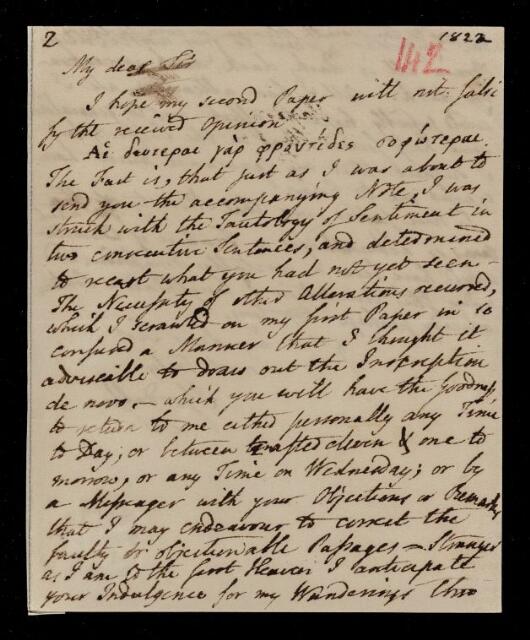 2 1822
142
My dear Sir
I hope my second Paper will not falsi
fy the received Opinion
Αἱ δευτεραι γὰρ φροντίδες σοφώτεραι.
The Fact is, that just as I was about to
send you the accompanying Note, I was
struck with the Tautology of Sentiment in
two consecutive Sentences, and determined
to recast what you had not yet seen –
The Necessity of other Alterations recurred,
which I scrawled on my first Paper in so
confused a Manner that I thought it
adviseable to draw out the Inscription
de novo, – which you will have the goodness
to return to me either personally any Time
to Day, or between eleven & one to
morrow, or any Time on Wednesday; or by
a Messenger with your Objections or Remarks
that I may endeavour to correct the
faulty or objectionable Passages – Stranger
as I am to the Heaven I anticipate
your Indulgence for my Wanderings thro